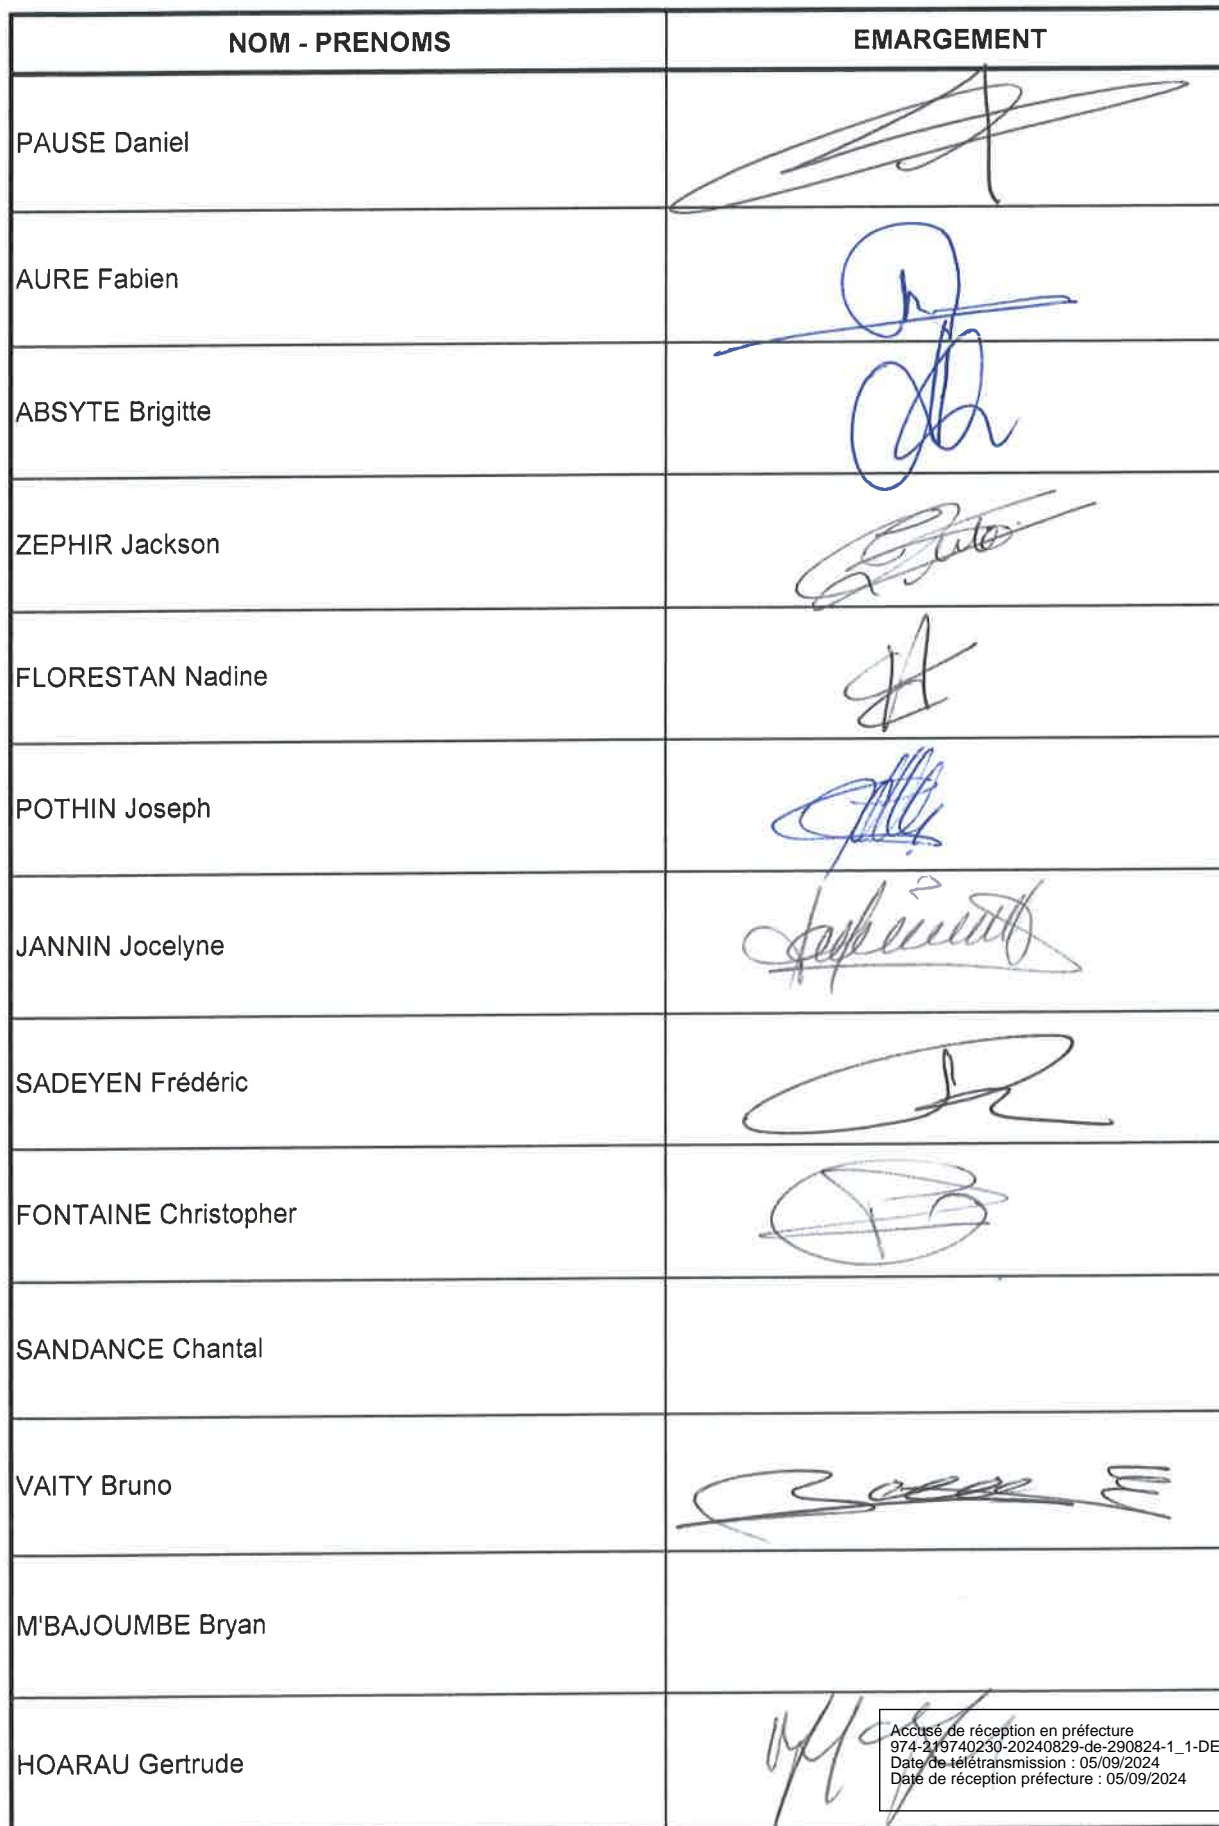 NOM - PRENOMS EMARGEMENT
PAUSE Daniel
AURE Fabien
ABSYTE Brigitte
ZEPHIR Jackson
FLORESTAN Nadine
POTHIN Joseph
JANNIN Jocelyne
SADEYEN Frédéric
FONTAINE Christopher
SANDANCE Chantal
VAITY Bruno
M'BAJOUMBE Bryan
HOARAU Gertrude
Accusé de réception en préfecture
974-219740230-20240829-de-290824-1_1-DE
Date de télétransmission : 05/09/2024
Date de réception préfecture : 05/09/2024